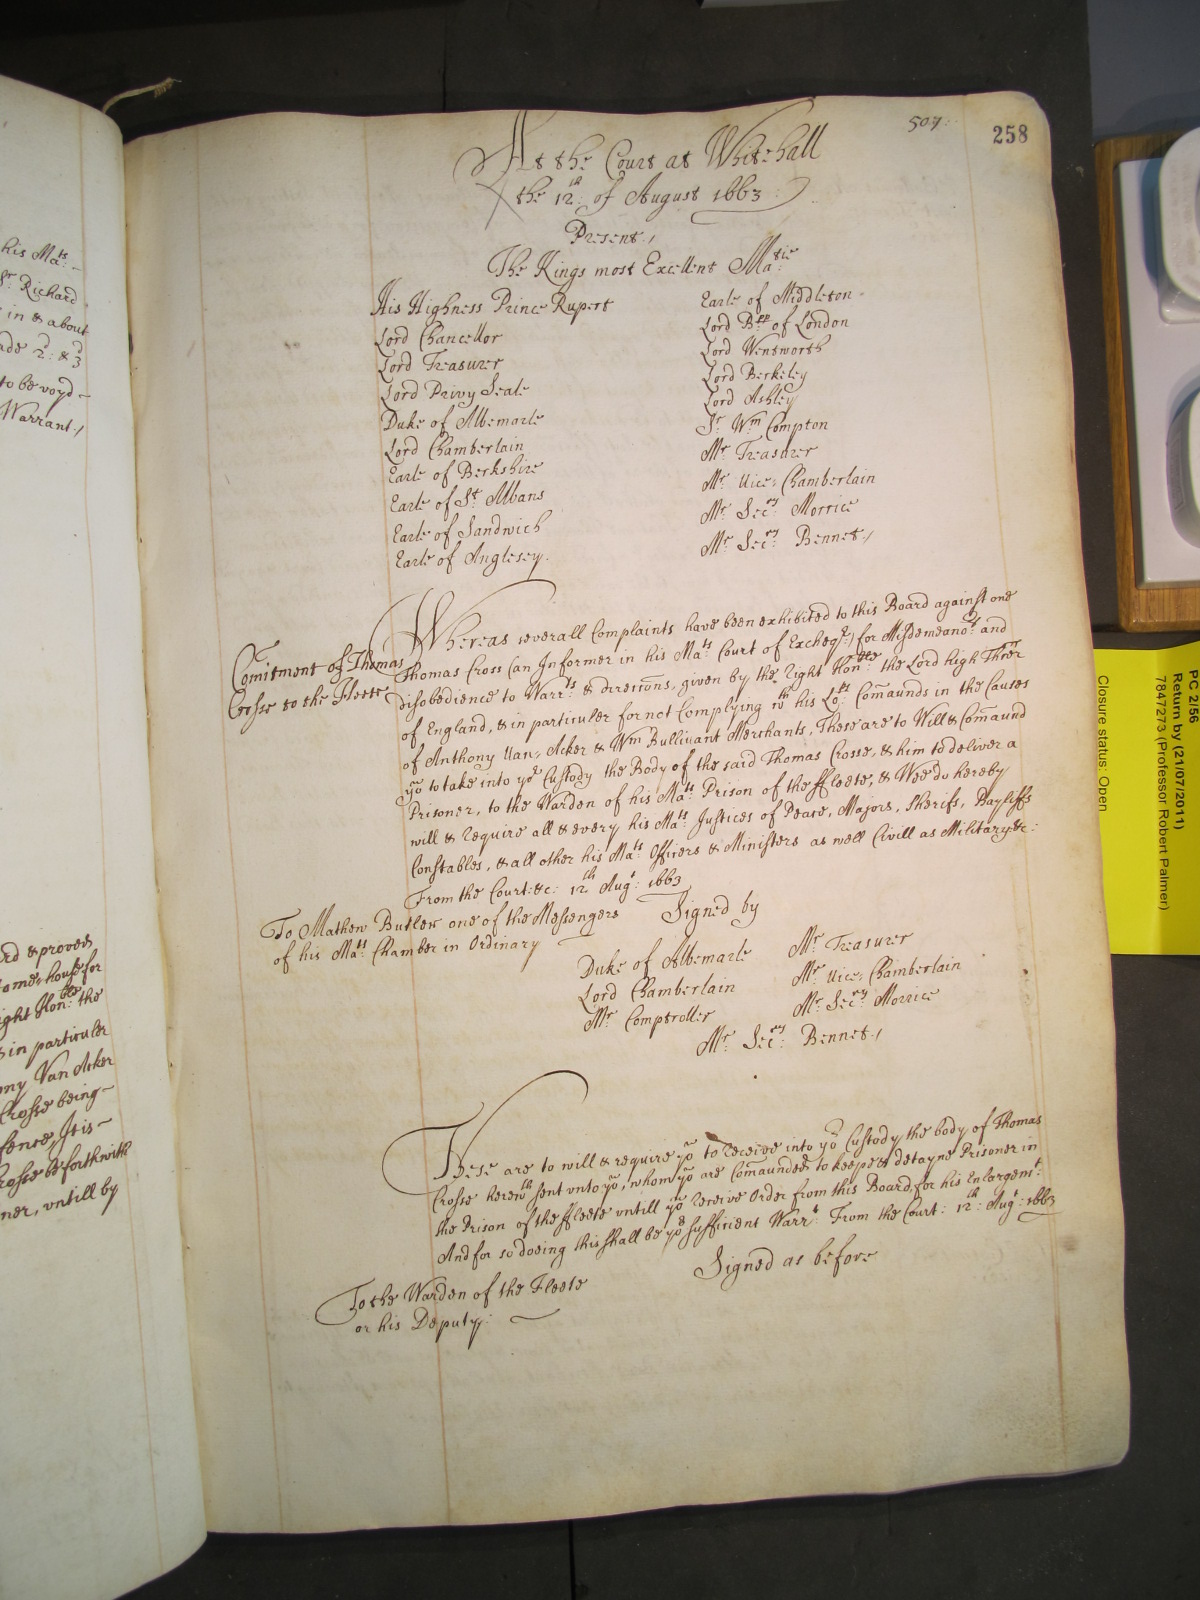 his Ma:ts
Sr Richard
in & about
2d: & 3d
to be voyd
Warrant./
rd & proved
ome=house for
ight Honble: the
in particuler
ony Van Acker
Crosse being
fence, It is
rosse be forthwith
ner, untill by
507:
258
At the Court at Whitehall
the 12th: of August 1663
Present./
The Kings most Excellent Matie:
His Highness Prince Rupert
Lord Chancellor
Lord Treasurer
Lord Privy Seale
Duke of Albemarle
Lord Chamberlain
Earle of Berkshire
Earle of St. Albans
Earle of Sandwich
Earle of Anglesey.
Earle of Middleton
Lord Bpp of London
Lord Wentworth
Lord Berkeley
Lord Ashley
Sr Wm Compton
Mr Treasurer
Mr Vice=Chamberlain
Mr Secry: Morrice
Mr Secry: Bennet./
Comitment of Thomas
Crosse to the Fleete
Whereas severall Complaints have been exhibited to this Board against one
Thomas Cross (an Informer in his Mats: Court of Excheqr:) for Misdemeanors: and
disobedience to Warrts: & direcions, given by the Right Honble: the Lord high Thrër
of England, & in particuler for not Complying wth his Lops: Comaunds in the Causes
of Anthony Van=Acker & Wm Bullivant Merchants, These are to Will & Comaund
yo to take into yor Custody the Body of the said Thomas Crosse, & him to deliver a
Prisoner, to the Warden of his Mats: Prison of the ffleete, & Wee do hereby
will & require all & every his Mats: Justices of Peace, Majors, Sherifs, Bayliffs
Constables, & all other his Mats: Officers & Ministers as well Civill as Military &c:
From the Court: &c: 12th Augt: 1663
To Mathew Butler one of the Messengers
of his Mats: Chamber in Ordinary
Signed by
Duke of Albemarle
Lord Chamberlain
Mr Comptroller
Mr Treasurer
Mr Vice=Chamberlain
Mr Secry: Morrice
Mr Secry: Bennet./
These are to will & require yo to Receive into yor Custody the body of Thomas
Crosse herewth sent unto yo, whom yo are Comaunded to keepe & detayne Prisoner in
the Prison of the ffleete untill yo receive Order from this Board, for his Enlargemt:
And for so doeing this shall be yor sufficient Warrt: From the Court: 12th: Augt: 1663
Signed as before
To the Warden of the Fleete
or his Deputy:
PC 2/56
Return by (21/07/2011)
7847273 (Professor Robert Palmer)
Closure status: Open